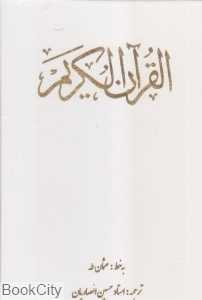 القرآن الكريم
به خط: عثمان طه
ترجمه: استاد حسین انصاریان
BookCity